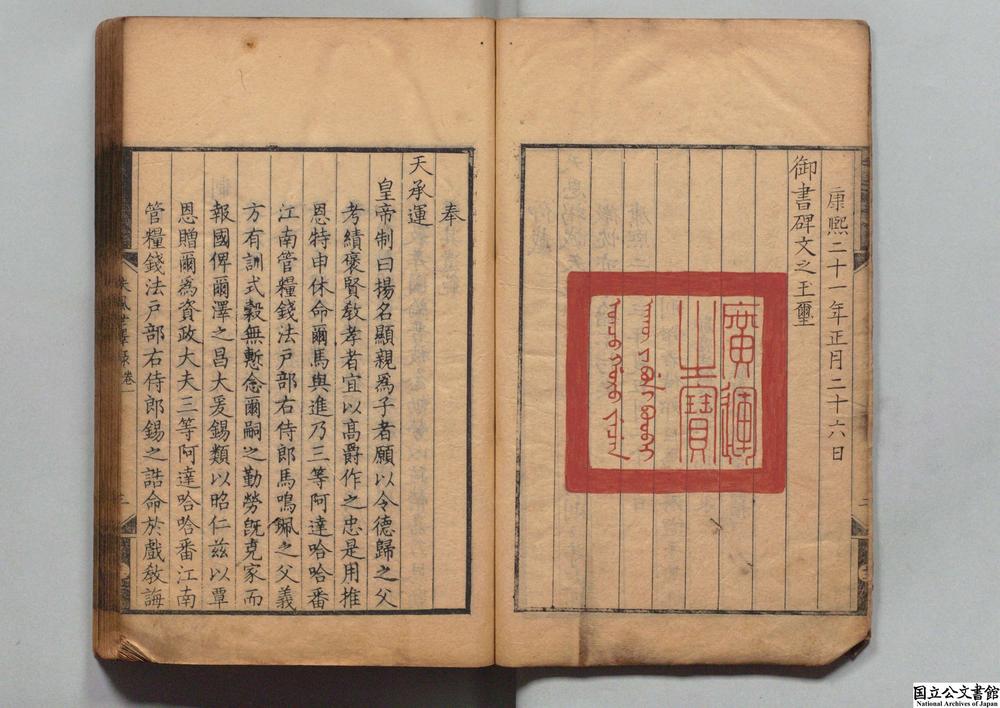 康熙二十一年正月二十六日
御書碑文之玉璽
廣運
之寶
奉
天承運
皇帝制曰揚名顯親爲子者願以令德歸之父
考績褒賢敎孝者宜以高爵作之忠是用推
恩特申休命爾馬與進乃三等阿達哈哈番
江南管糧錢法戸部右侍郎馬鳴珮之父義
方有訓式穀無慙念爾嗣之勤勞旣克家而
報國俾爾澤之昌大爰錫類以昭仁兹以覃
恩贈爾爲資政大夫三等阿達哈哈番江南
管糧錢法戸部右侍郎錫之誥命於戲敎誨
卷一
三
二
国立公文書館
National Archives of Japan